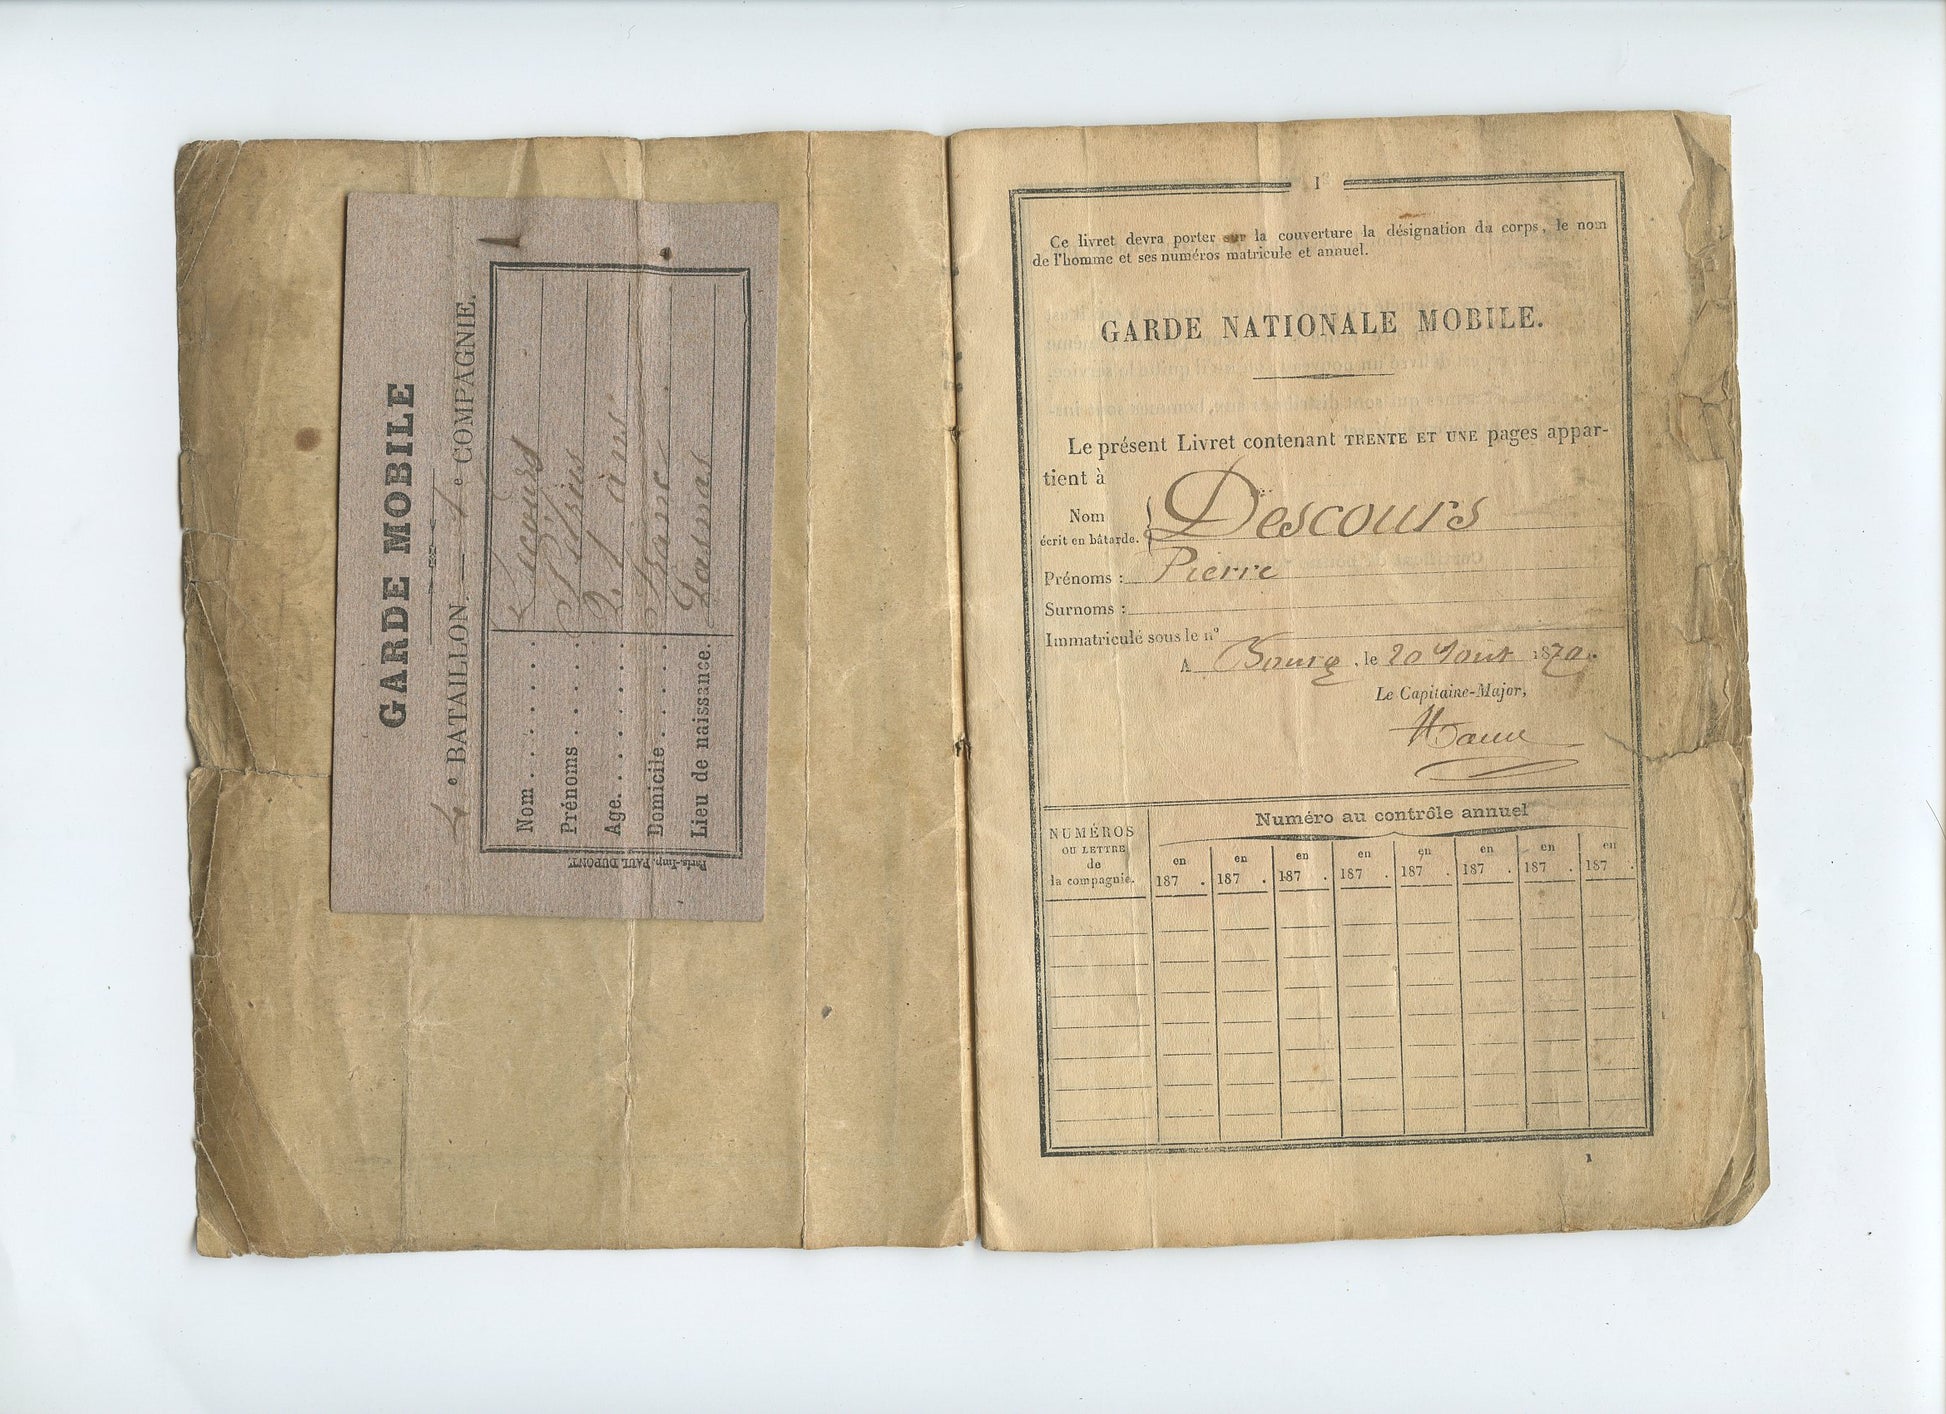 GARDE MOBILE
4e BATAILLON. — 1e COMPAGNIE.
Nom
Prénoms
Age. 21 ans
Domicile
Lieu de naissance.
Paris.-Imp. PAUL DUPONT.
1
Ce livret devra porter sur la couverture la désignation du corps, le nom
de l'homme et ses numéros matricule et annuel.
GARDE NATIONALE MOBILE.
Le présent Livret contenant TRENTE ET UNE pages appar-
tient à
Nom
écrit en bâtarde. Descours
Prénoms : Pierre
Surnoms :
Immatriculé sous le n°
A Bourg, le 20 Aout 1870.
Le Capitaine-Major,
NUMÉROS
OU LETTRE
de
la compagnie.
Numéro au contrôle annuel
en en en en en en en en
187 . 187 . 187 . 187 . 187 . 187 . 187 . 187 .
1